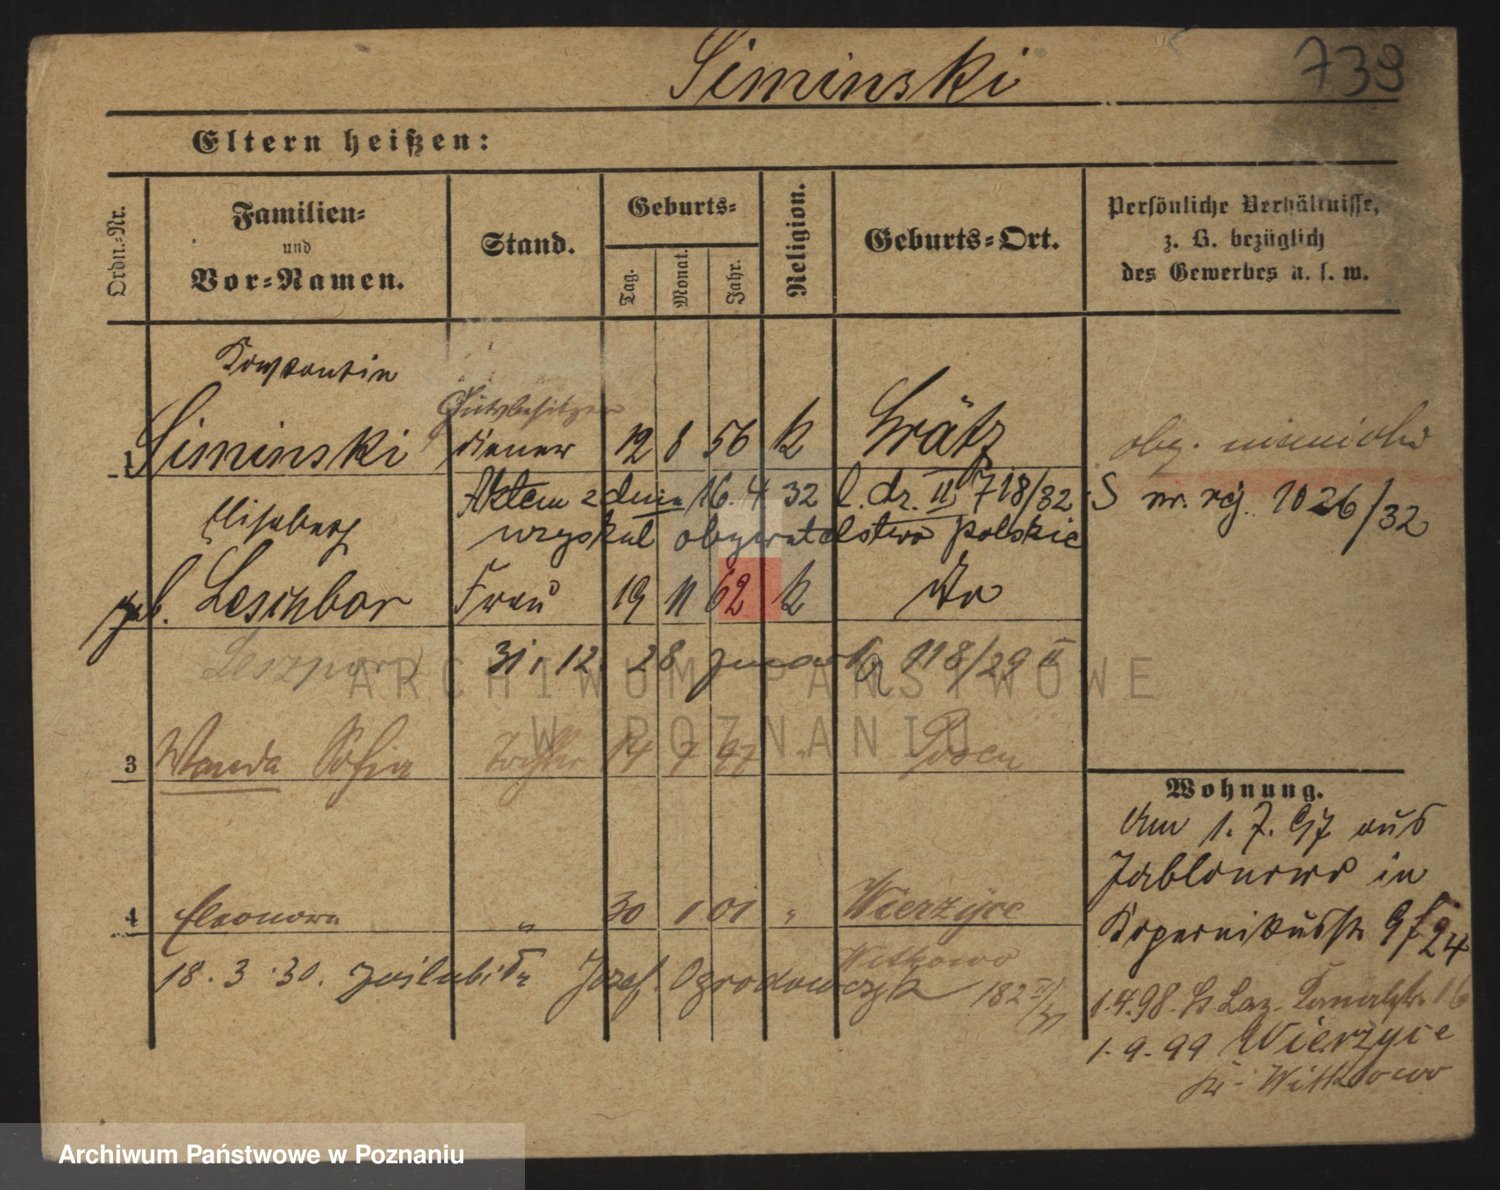 Siminski 739
Eltern heißen:
Ordn.-Nr.
Familien-
und
Vor-Namen.
Stand.
Geburts-
Tag. Monat. Jahr.
Religion.
Geburts-Ort.
Persönliche Verhältnisse,
z. B. bezüglich
des Gewerbes u. s. w.
Konstantin
Gutsbesitzer
1 Siminski diener 12 8 56 k Grätz
obg. niemiecki
Aktem z dnia 16.4.32 l. dz. II 718/32 S nr. rej. 1026/32
uzyskał obywatelstwo polskie
Elisabeth
geb. Leschbor Frau 19 11 62 k Do
Leszpor 31.12.28 zmarła 118/29 II
3 Wanda Sofia Tochter 14 7 97 " Posen
4 Eleonora " 30 1 01 " Wierzyce
Witkowo
18.3.30. zaślubiła Józef Ogrodowczyk 182
Wohnung.
Am 1.7.97 aus
Jablonowo in
Kopernikusstr 9
1.4.98. St Laz. Kanalstr 16
1.9.99 Wierzyce
Kr. Witkowo
ARCHIWUM PAŃSTWOWE
W POZNANIU
Archiwum Państwowe w Poznaniu